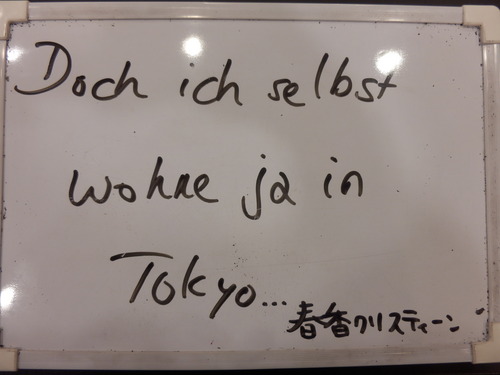 Doch ich selbst
wohne ja in
Tokyo...
春香クリスティーン